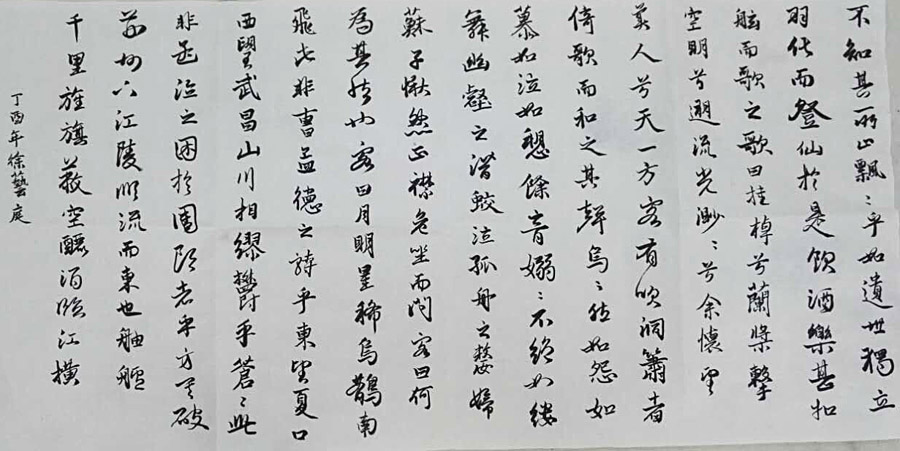 不知其所止飄〻乎如遺世獨立
羽化而登仙於是飲酒樂甚扣
舷而歌之歌曰桂棹兮蘭槳擊
空明兮遡流光渺〻兮余懷望
美人兮天一方客有吹洞簫者
倚歌而和之其聲烏〻然如怨如
慕如泣如愬餘音嫋〻不絕如縷
舞幽壑之潛蛟泣孤舟之嫠婦
蘇子愀然正襟危坐而問客曰何
為其然也客曰月明星稀烏鵲南
飛此非曹孟德之詩乎東望夏口
西望武昌山川相繆鬱乎蒼〻此
非孟德之困於周郎者乎方其破
荊州下江陵順流而東也舳艫
千里旌旗蔽空釃酒臨江橫
丁酉年徐藝庭